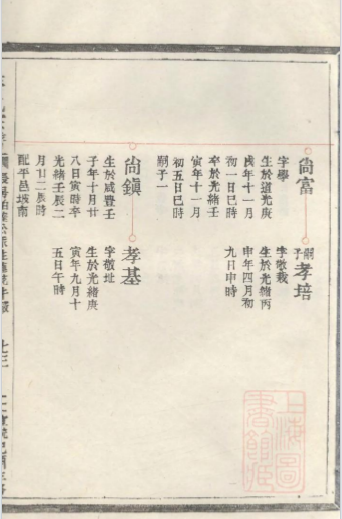 尚富
字學
生於道光庚
戌年十一月
初一日巳時
卒於光緒壬
寅年十一月
初五日巳時
嗣子一
嗣子孝培
字敬栽
生於光緒丙
申年四月初
九日申時
尚鎮
生於咸豐壬
子年十月廿
八日寅時卒
光緒壬辰二
月廿二辰時
配平邑坡南
孝基
字敬址
生於光緒庚
寅年九月十
五日午時
上海圖
書館藏